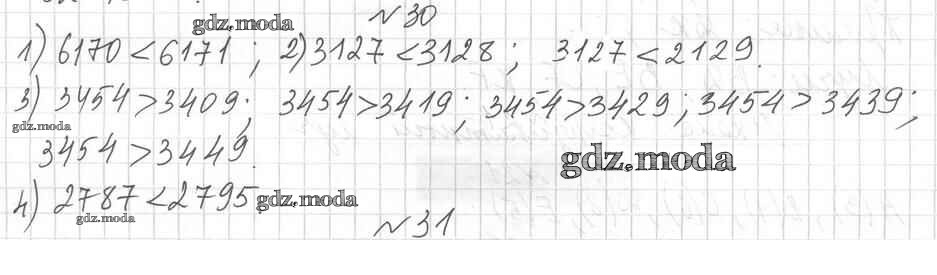 №30
gdz.moda
1) 6170 < 6171 ; 2) 3127 < 3128 ; 3127 < 2129.
3) 3454 > 3409; 3454 > 3419; 3454 > 3429; 3454 > 3439;
gdz.moda
3454 > 3449.
gdz.moda
4) 2787 < 2795
gdz.moda
gdz.moda
№31